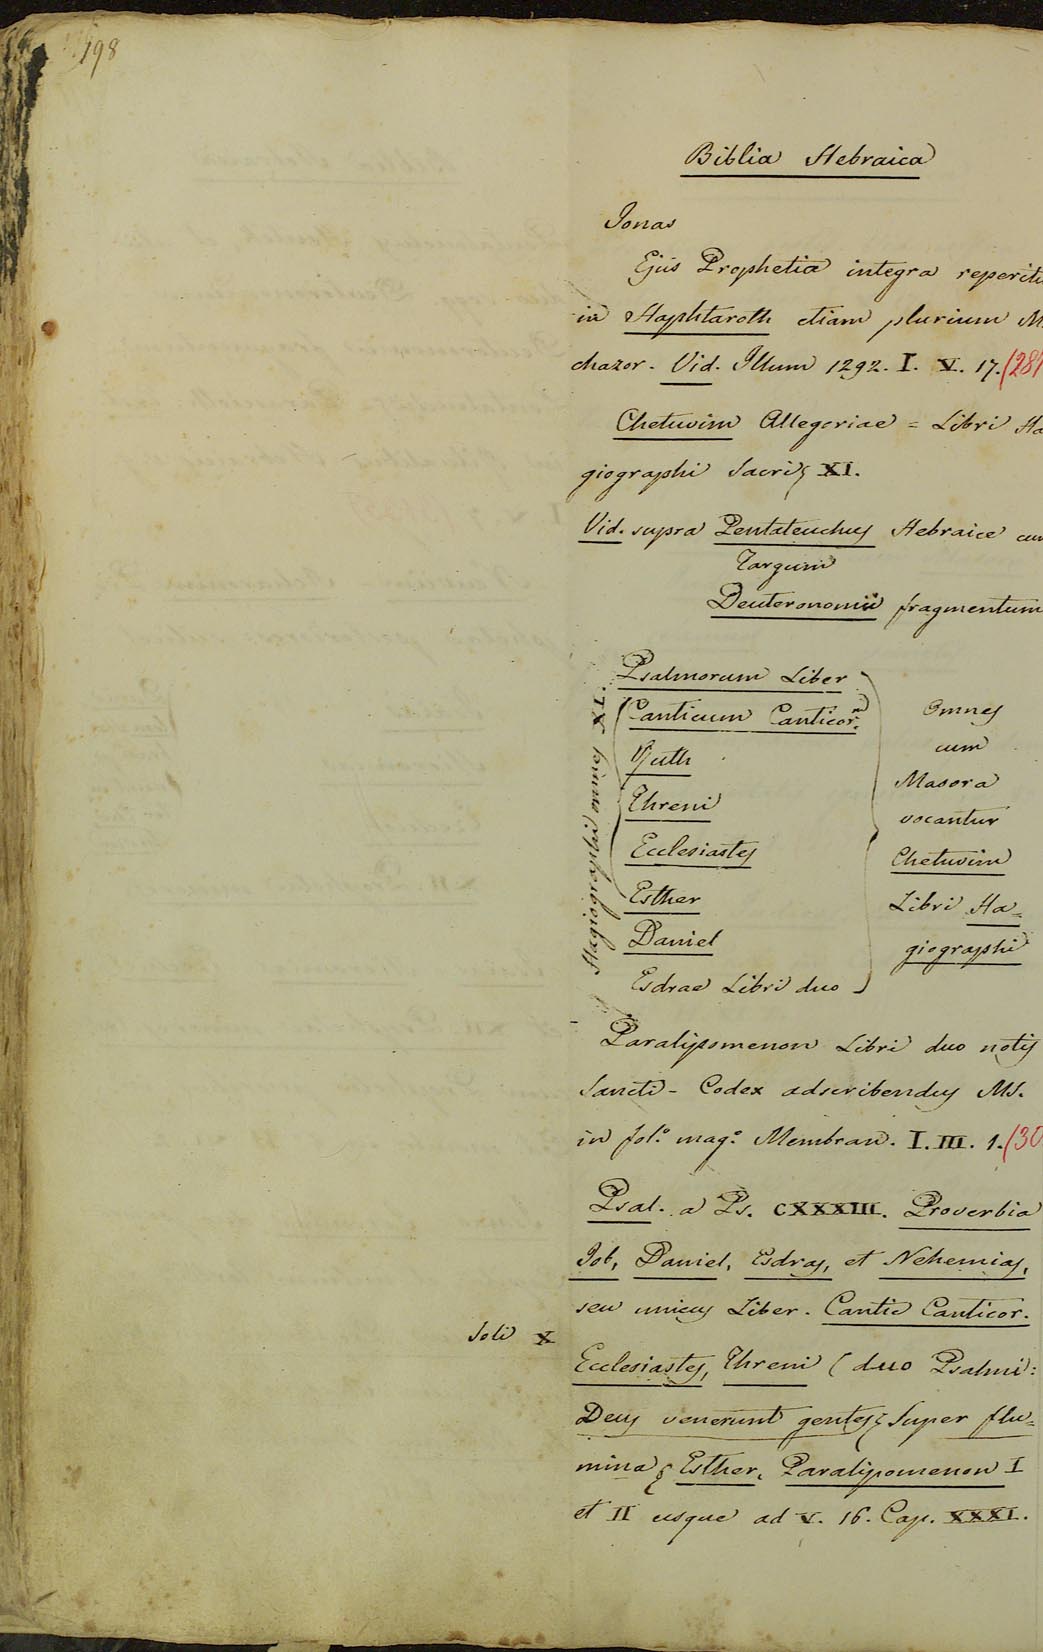 198
Biblia Hebraica
Jonas
Ejus Prophetia integra reperit
in Haphtaroth etiam plurium M
chazor. Vid. Illum 1292. I. V. 17. (281
Chetuvim Allegoriae = Libri Ha
giographi Sacri XI.
Vid. supra Pentateuchus Hebraice cum
Targum
Deuteronomii fragmentum
Hagiographi omnes XI.
Psalmorum Liber
Canticum Canticor.m
Ruth
Threni
Ecclesiastes
Esther
Daniel
Esdrae Libri duo
Omnes
cum
Masora
vocantur
Chetuvim
Libri Ha=
giographi
Paralipomenon Libri duo notis
Sancti - Codex adscribendus MS.
in fol.º mag.º Membran. I. III. 1. (30
Psal. a Ps. CXXXIII. Proverbia
Job, Daniel, Esdras, et Nehemias,
seu unicus Liber. Cantic Canticor.
Soli X
Ecclesiastes, Threni (duo Psalmi:
Deus venerunt gentes; Super flu=
mina; Esther, Paralipomenon I
et II usque ad V. 16. Cap. XXXI.